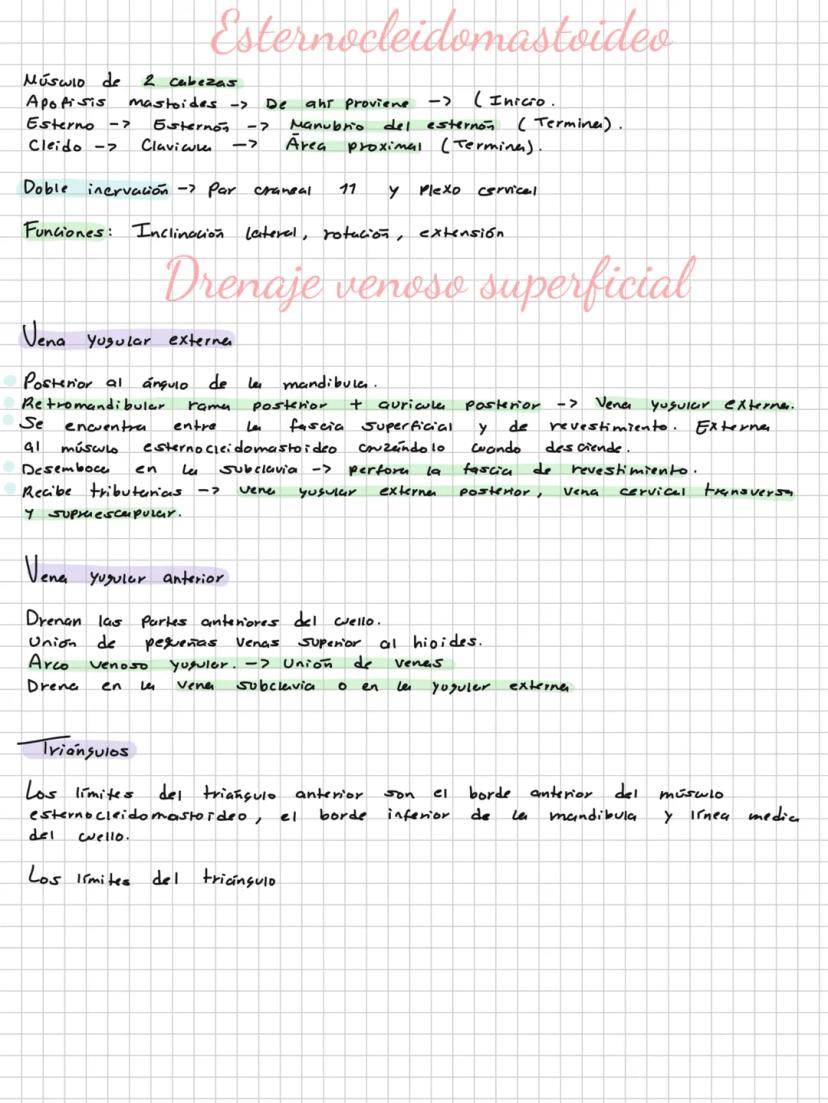 Esternocleidomastoideo
Músculo de 2 cabezas
Apófisis mastoides -> De ahí proviene -> (Inicio.
Esterno -> Esternón -> Manubrio del esternón (Termina).
Cleido -> Clavicula -> Área proximal (Termina).
Doble inervación -> Par craneal 11 y Plexo cervical
Funciones: Inclinación lateral, rotación, extensión
Drenaje venoso superficial
Vena yugular externa
Posterior al ángulo de la mandibula.
Retromandibular rama posterior + auricula posterior -> Vena yugular externa.
Se encuentra entre la fascia superficial y de revestimiento. Externa
al músculo esternocleidomastoideo cruzándolo cuando desciende.
Desemboca en la subclavia -> perfora la fascia de revestimiento.
Recibe tributarias -> vena yugular externa posterior, vena cervical transversa
y supraescapular.
Vena yugular anterior
Drenan las partes anteriores del cuello.
Unión de pequeñas venas superior al hioides.
Arco venoso yugular. -> Unión de venas
Drena en la vena subclavia o en la yugular externa
Triángulos
Los límites del triángulo anterior son el borde anterior del músculo
esternocleidomastoideo, el borde inferior de la mandibula y línea media
del cuello.
Los límites del triángulo